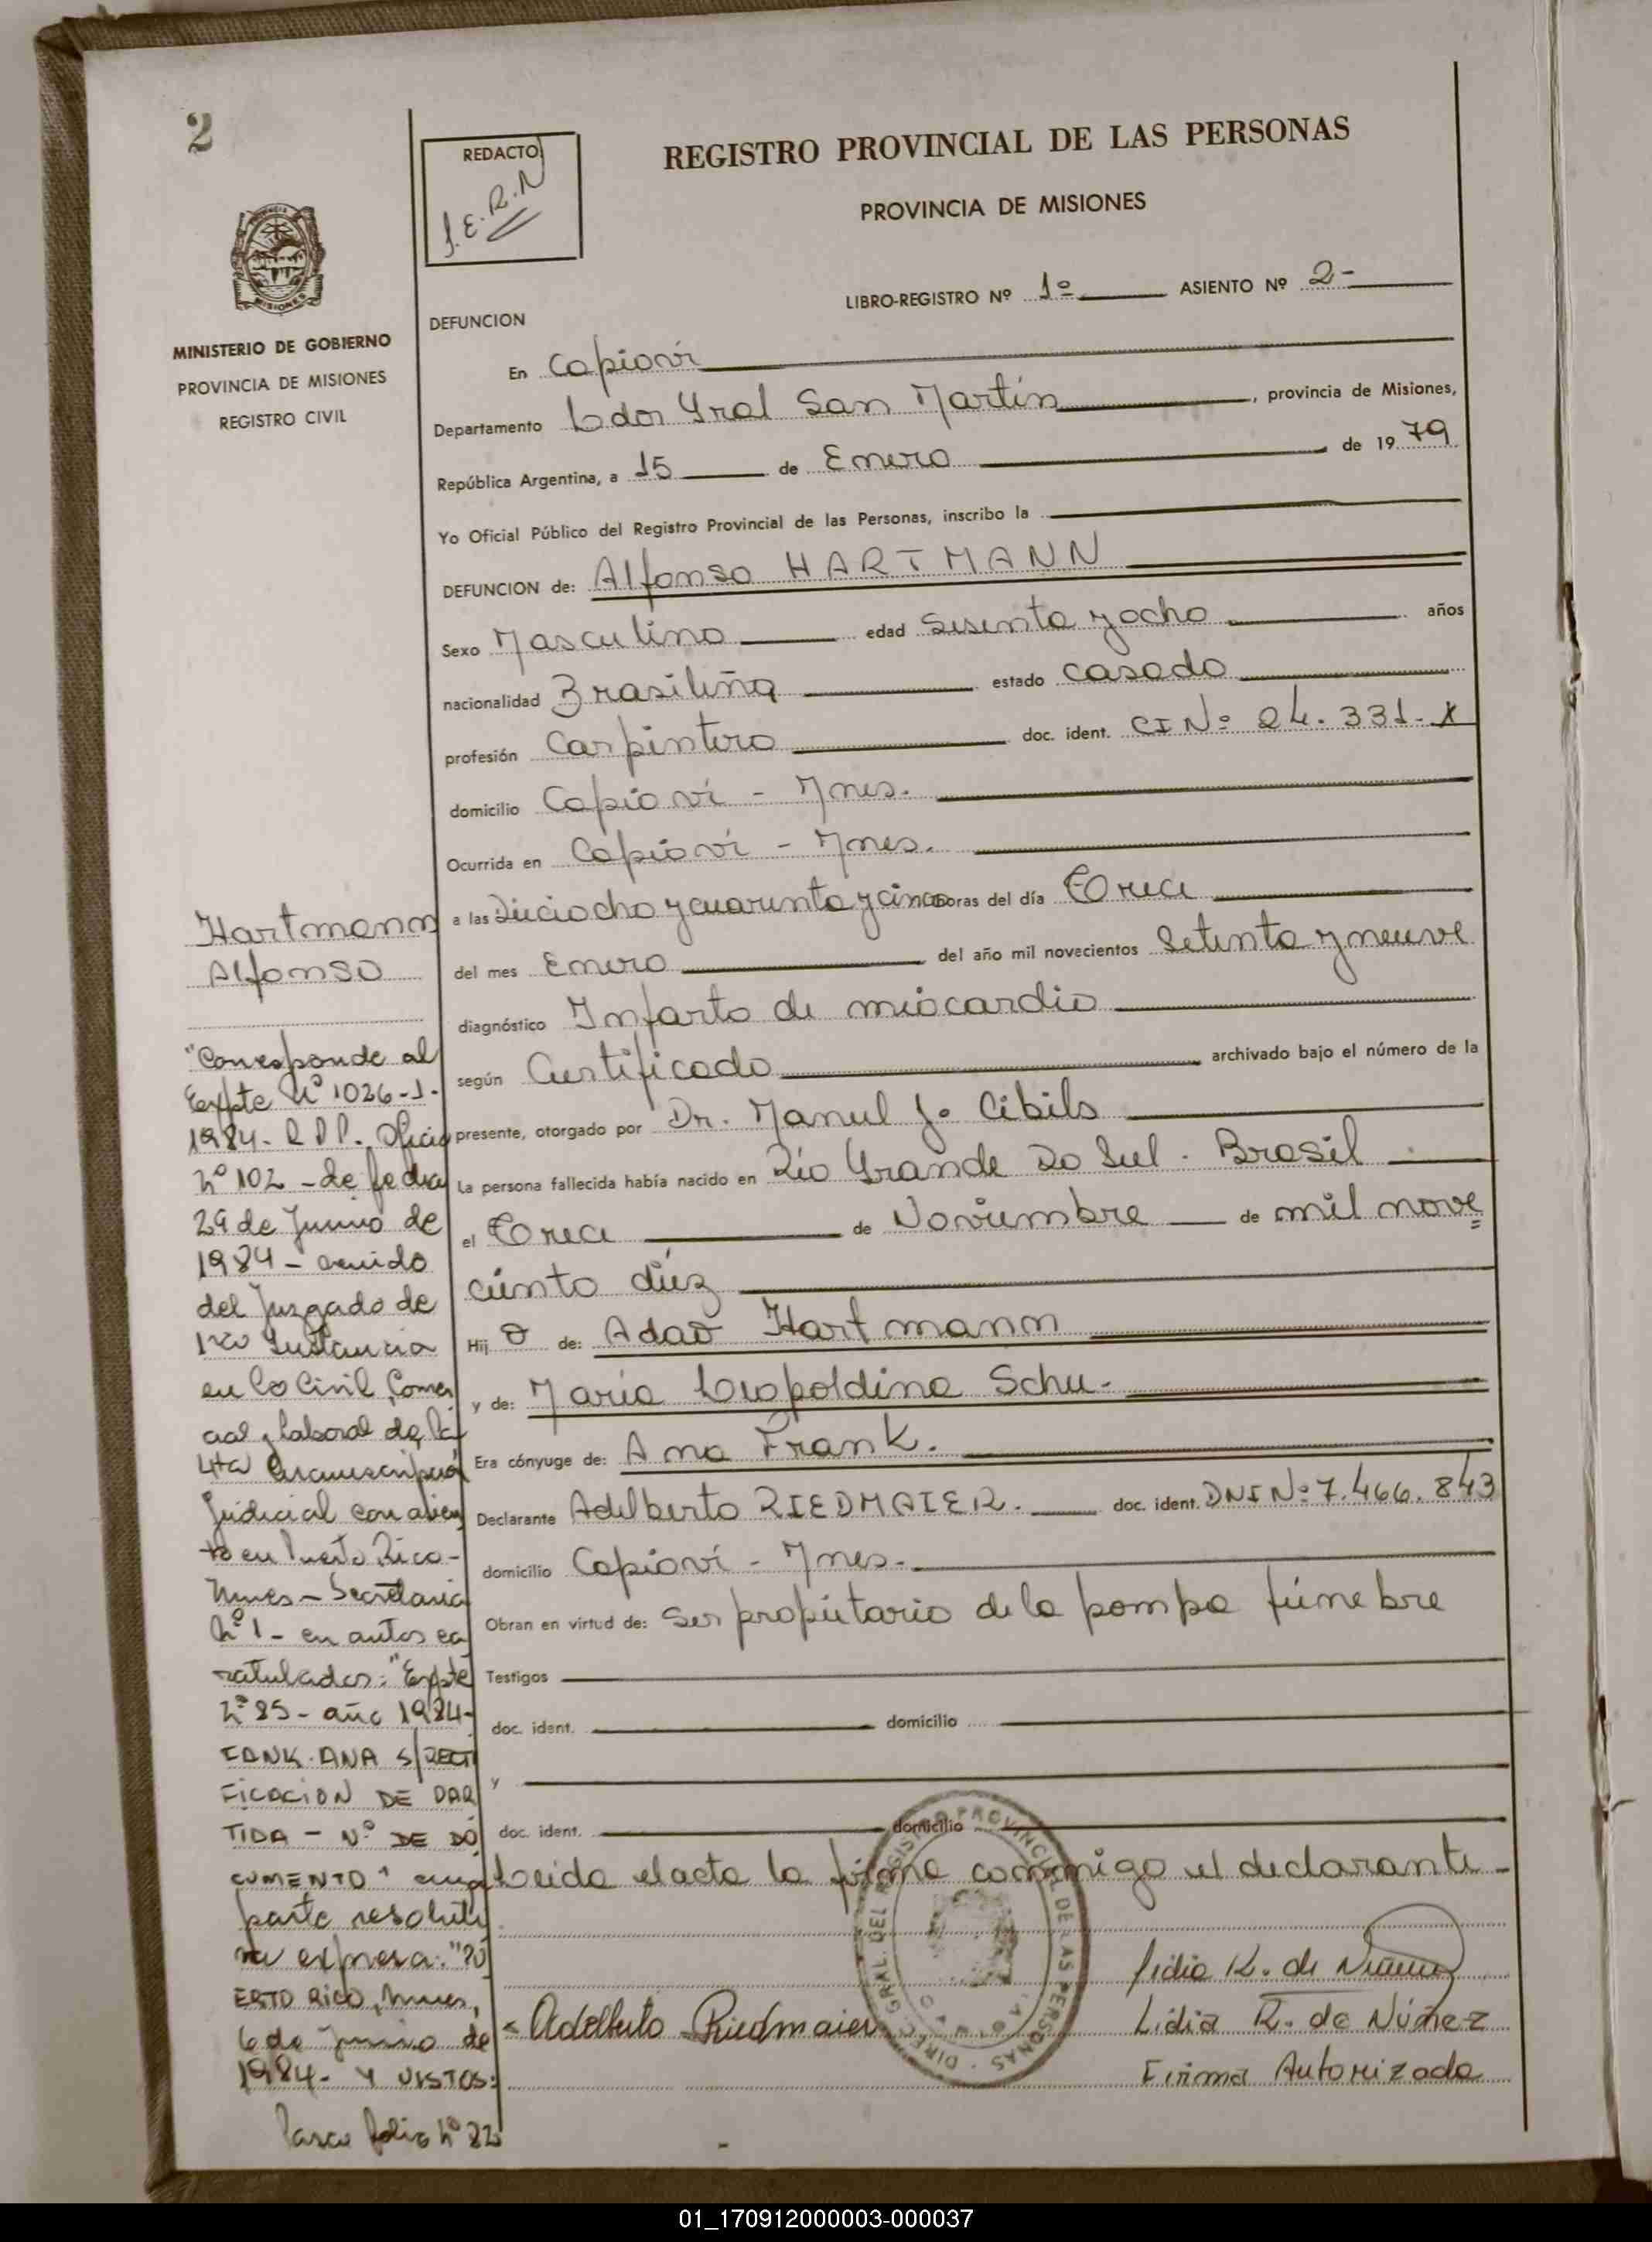 2
REDACTO
J.E.R.N
REGISTRO PROVINCIAL DE LAS PERSONAS
PROVINCIA DE MISIONES
MISIONES
MINISTERIO DE GOBIERNO
PROVINCIA DE MISIONES
REGISTRO CIVIL
LIBRO-REGISTRO Nº 1º ASIENTO Nº 2-
DEFUNCION
En Capioví
Departamento Ldor Gral San Martín, provincia de Misiones,
República Argentina, a 15 de Enero de 1979
Yo Oficial Público del Registro Provincial de las Personas, inscribo la
DEFUNCION de: Alfonso HARTMANN
Sexo Masculino edad Sesenta y ocho años
nacionalidad Brasileña estado casado
profesión Carpintero doc. ident. CI Nº 24.331-X
domicilio Capioví - Mnes.
Ocurrida en Capioví - Mnes.
a las Dieciocho y cuarenta y cinco horas del día Trece
del mes Enero del año mil novecientos Setenta y nueve
diagnóstico Infarto de miocardio
según Certificado archivado bajo el número de la
presente, otorgado por Dr. Manuel J. Cibils
La persona fallecida había nacido en Río Grande Do Sul - Brasil
el Trece de Noviembre de mil nove=
ciento diez
Hijo de: Adao Hartmann
y de: María Leopoldina Schu.
Era cónyuge de: Ana Frank.
Declarante Adelberto RIEDMAIER. doc. ident. DNI Nº 7.466.843
domicilio Capioví - Mnes.
Obran en virtud de: Ser propietario de la pompa fúnebre
Testigos
doc. ident. domicilio
y
doc. ident. domicilio
Leida el acta la firma conmigo el declarante-
Adelberto Riedmaier
Lidia R. de Núñez
Lidia R. de Núñez
Firma Autorizada
DIREC. GRAL. DEL REGISTRO PROVINCIAL DE LAS PERSONAS
Hartmann
Alfonso
"Corresponde al
Expte Nº 1026-J-
1984- R.P.P. Oficio
Nº 102 - de fecha
29 de Junio de
1984 - venido
del Juzgado de
1ra Instancia
en lo Civil, Comer
cial y Laboral de la
4ta Circunscripción
Judicial con asien
to en Puerto Rico-
Mnes - Secretaría
Nº 1 - en autos ca
ratulados: "Expte
Nº 85 - año 1984-
FANK ANA S/RECTI
FICACION DE PAR
TIDA - Nº DE DO
CUMENTO" cuya
parte resoluti
va expresa: "PU
ERTO RICO, Mnes,
6 de Junio de
1984- Y VISTOS:
Pasa folio Nº 22
01_170912000003-000037